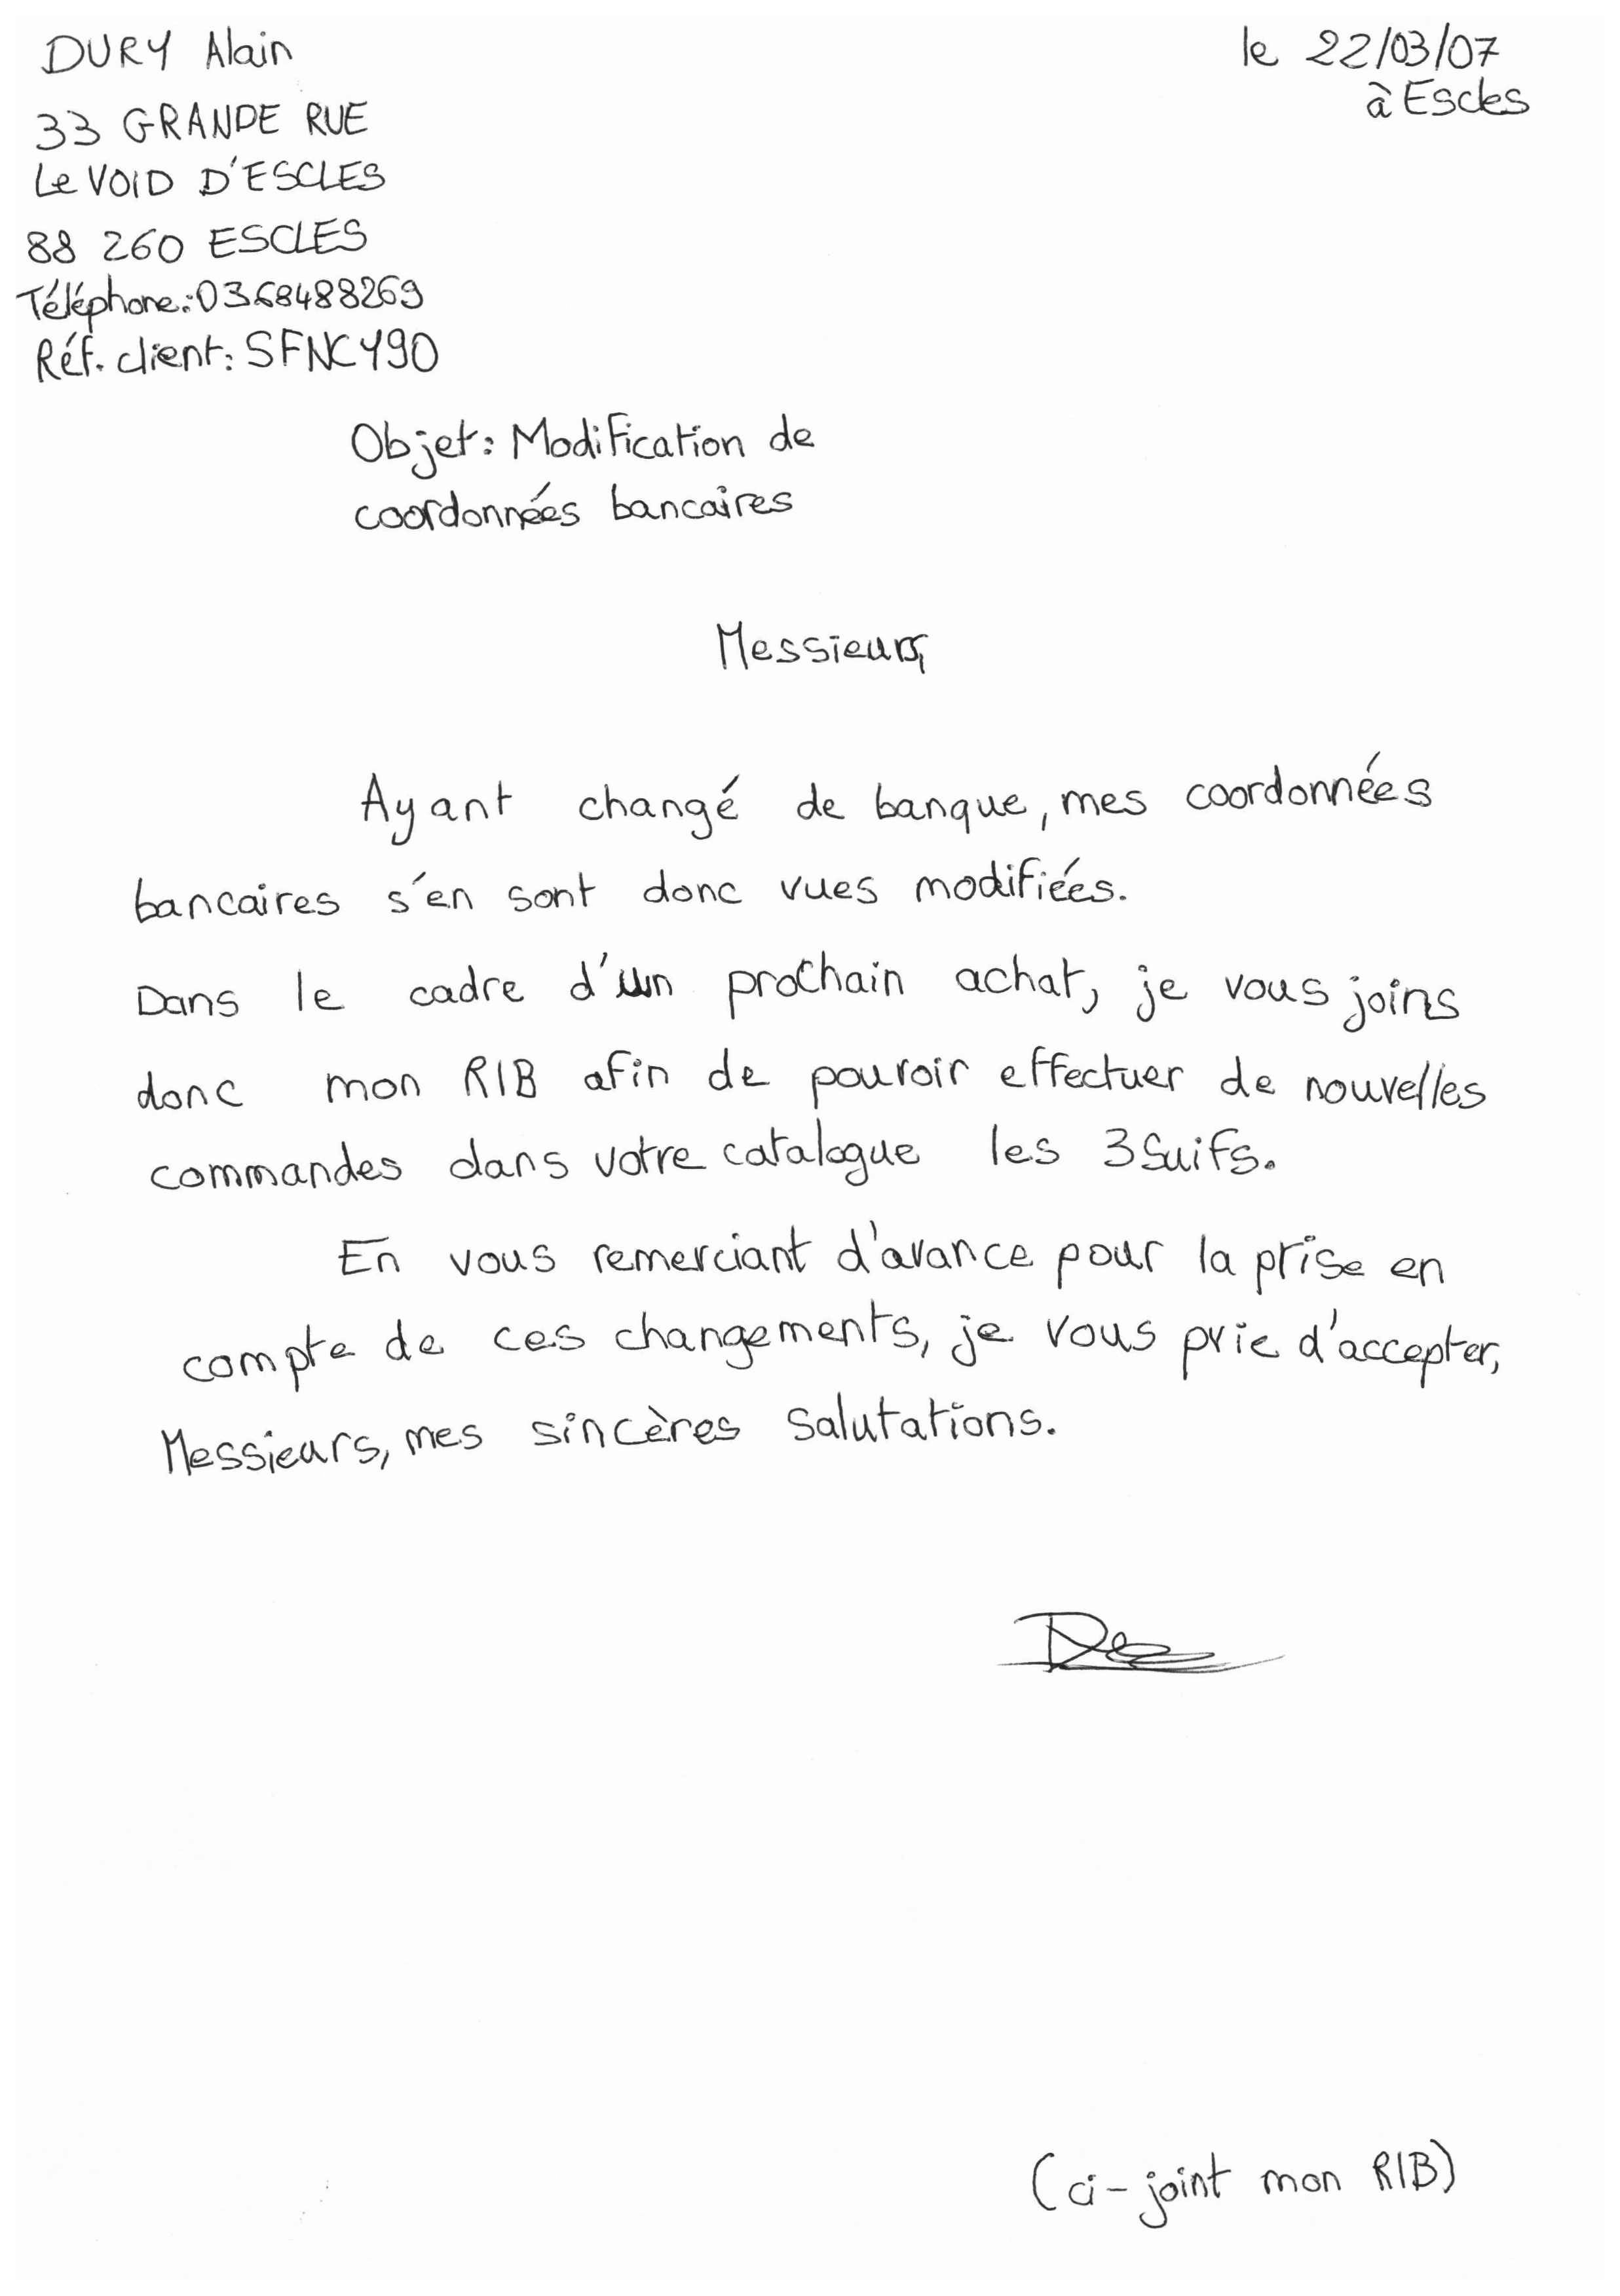 DURY Alain
le 22/03/07
à Escles
33 GRANDE RUE
Le VOID D'ESCLES
88 260 ESCLES
Téléphone: 0368488269
Réf. client: SFNCY90
Objet: Modification de
coordonnées bancaires
Messieurs,
Ayant changé de banque, mes coordonnées
bancaires s'en sont donc vues modifiées.
Dans le cadre d'un prochain achat, je vous joins
donc mon RIB afin de pouvoir effectuer de nouvelles
commandes dans votre catalogue les 3 Suifs.
En vous remerciant d'avance pour la prise en
compte de ces changements, je vous prie d'accepter,
Messieurs, mes sincères salutations.
(ci-joint mon RIB)